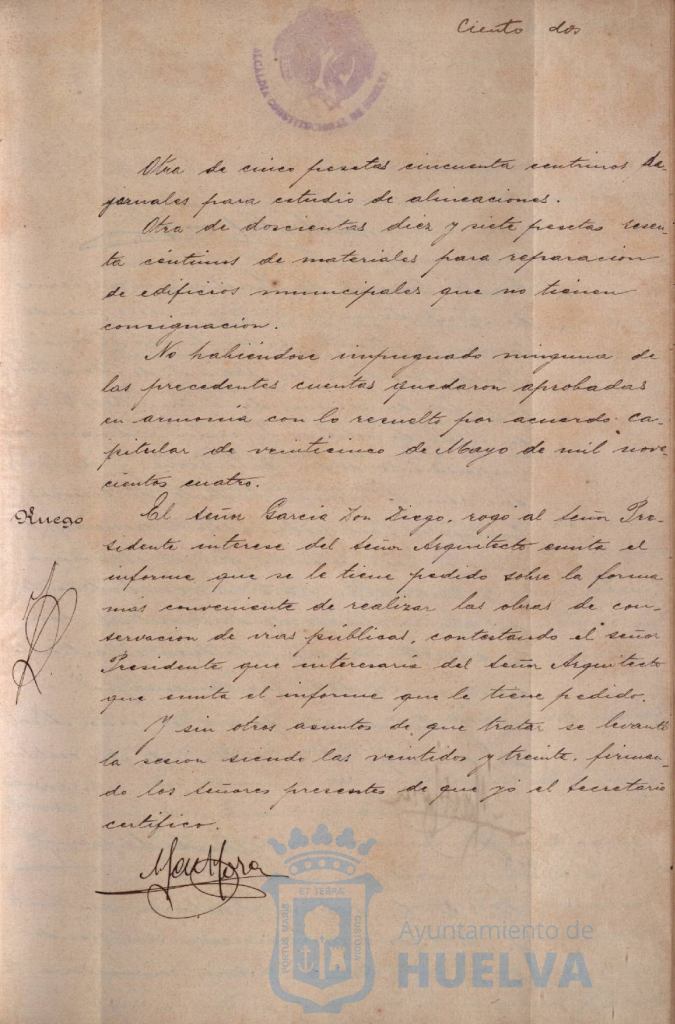 Ciento dos
ALCALDIA CONSTITUCIONAL DE HUELVA
Otra de cinco pesetas cincuenta centimos de
jornales para estudio de alineaciones.
Otra de doscientas diez y siete pesetas sesen-
ta céntimos de materiales para reparacion
de edificios municipales que no tienen
consignacion.
No habiéndose impugnado ninguna de
las precedentes cuentas quedaron aprobadas
en armonia con lo resuelto por acuerdo ca-
pitular de veinticinco de Mayo de mil nove-
cientos cuatro.
Ruego
El señor Garcia Don Diego, rogó al señor Pre-
sidente interese del señor Arquitecto emita el
informe que se le tiene pedido sobre la forma
más conveniente de realizar las obras de con-
servacion de vias públicas, contestando el señor
Presidente que interesaria del señor Arquitecto
que emita el informe que le tiene pedido.
Y sin otros asuntos de que tratar se levantó
la sesion siendo las veintidos y treinta, firman-
do los señores presentes de que yo el Secretario
certifico.
Mora
ET TERRA
PORTUS MARIS
CUSTODIA
Ayuntamiento de
HUELVA